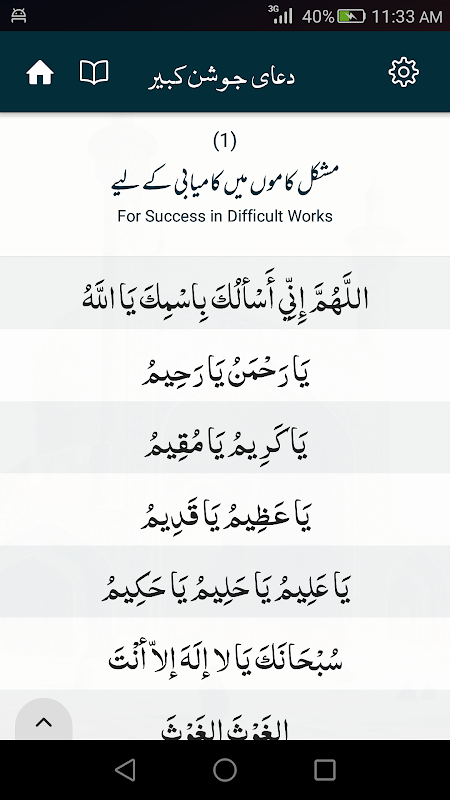 3G 40% 11:33 AM
دعای جوشن کبیر
(1)
مشکل کاموں میں کامیابی کے لیے
For Success in Difficult Works
اللَّهُمَّ إِنِّي أَسْأَلُكَ بِاسْمِكَ يَا اللَّهُ
يَا رَحْمَنُ يَا رَحِيمُ
يَا كَرِيمُ يَا مُقِيمُ
يَا عَظِيمُ يَا قَدِيمُ
يَا عَلِيمُ يَا حَلِيمُ يَا حَكِيمُ
سُبْحَانَكَ يَا لا إِلَهَ إِلاّ أَنْتَ
الغَوْثَ الغَوْثَ